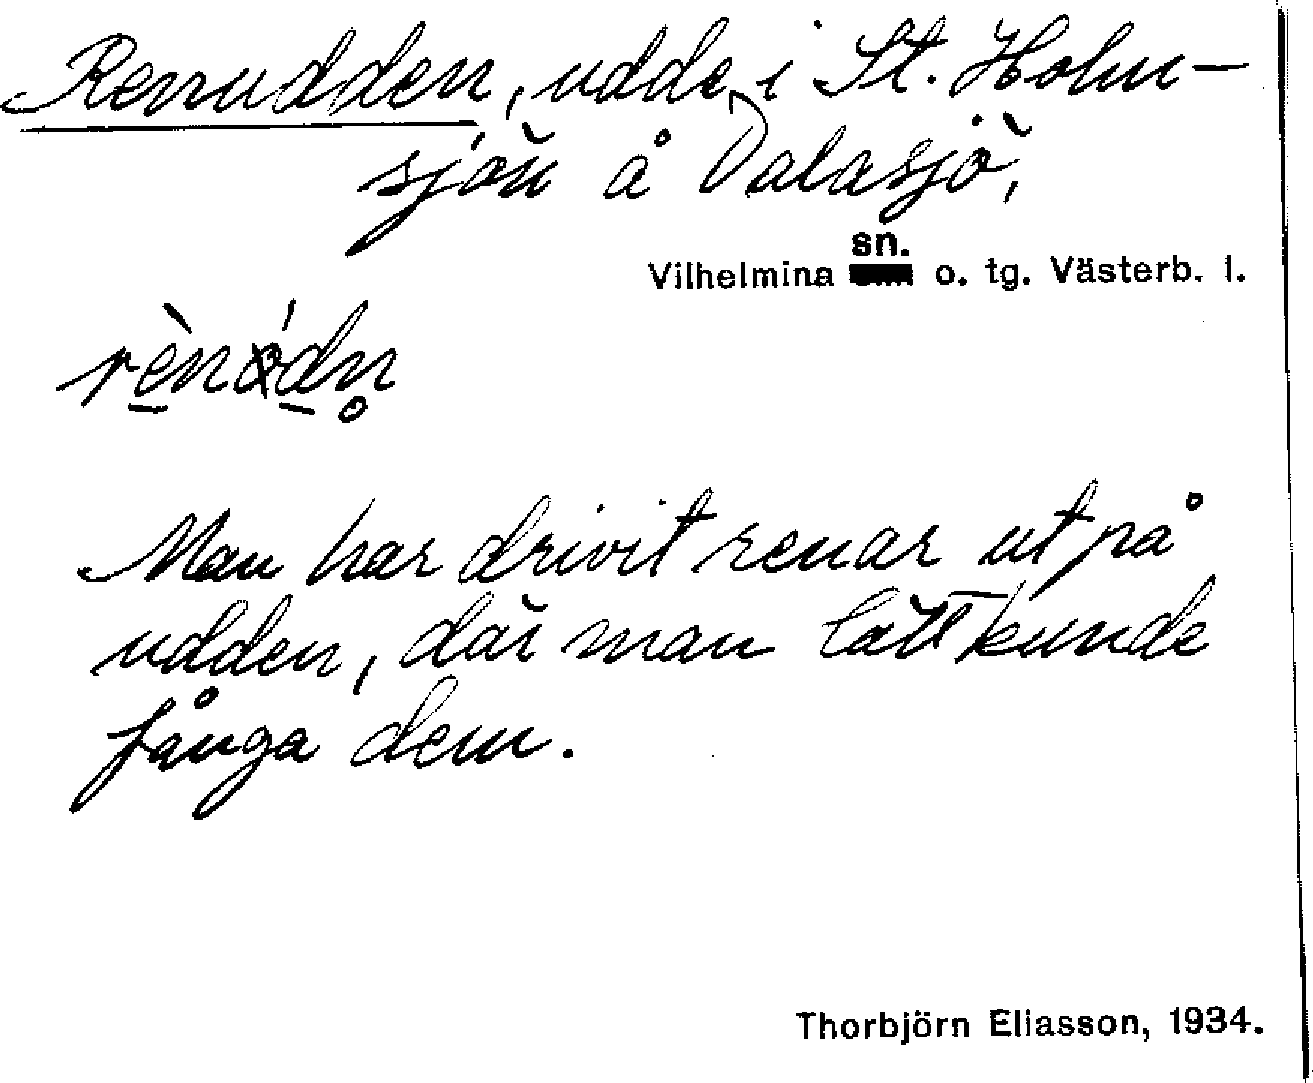 Renudden, udde i St. Holm-
sjön å Dalasjö,
sn.
Vilhelmina o. tg. Västerb. l.
rènódn̥
Man har drivit renar ut på
udden, där man lätt kunde
fånga dem.
Thorbjörn Eliasson, 1934.